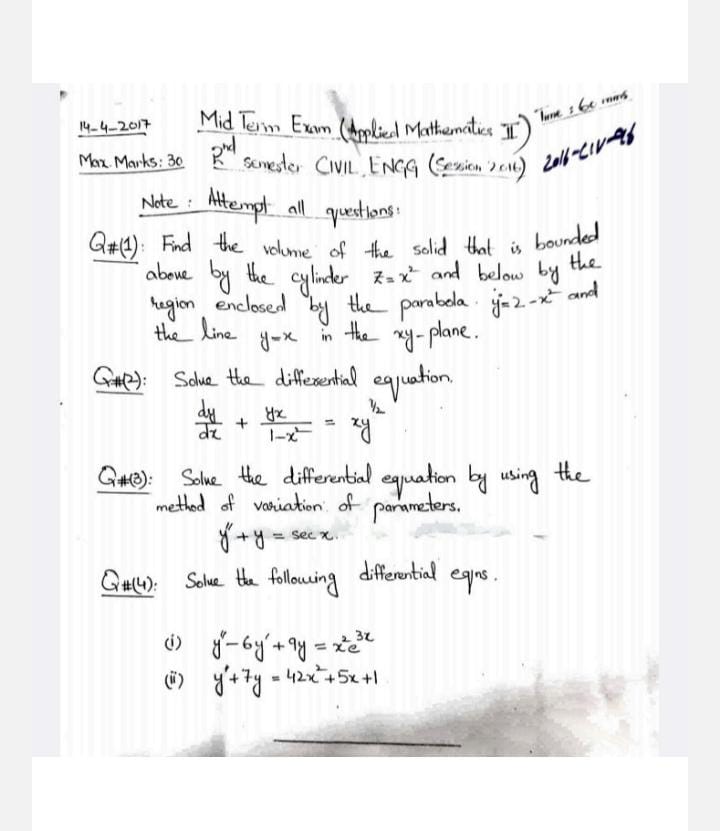 14-4-2017 Mid Term Exam (Applied Mathematics II) Time : 60 mins
Max. Marks: 30 2nd semester CIVIL, ENGG (Session 2016) 2016-CIV-
Note : Attempt all questions:
Q#(1): Find the volume of the solid that is bounded
above by the cylinder z=x² and below by the
region enclosed by the parabola y=2-x² and
the line y=x in the xy-plane.
Q#(2): Solve the differential equation.
dy/dx + yx/(1-x²) = xy^(1/2)
Q#(3): Solve the differential equation by using the
method of variation of parameters.
y''+y = sec x.
Q#(4): Solve the following differential eqns.
(i) y''-6y'+9y = x²e^(3x)
(ii) y''+7y = 42x²+5x+1